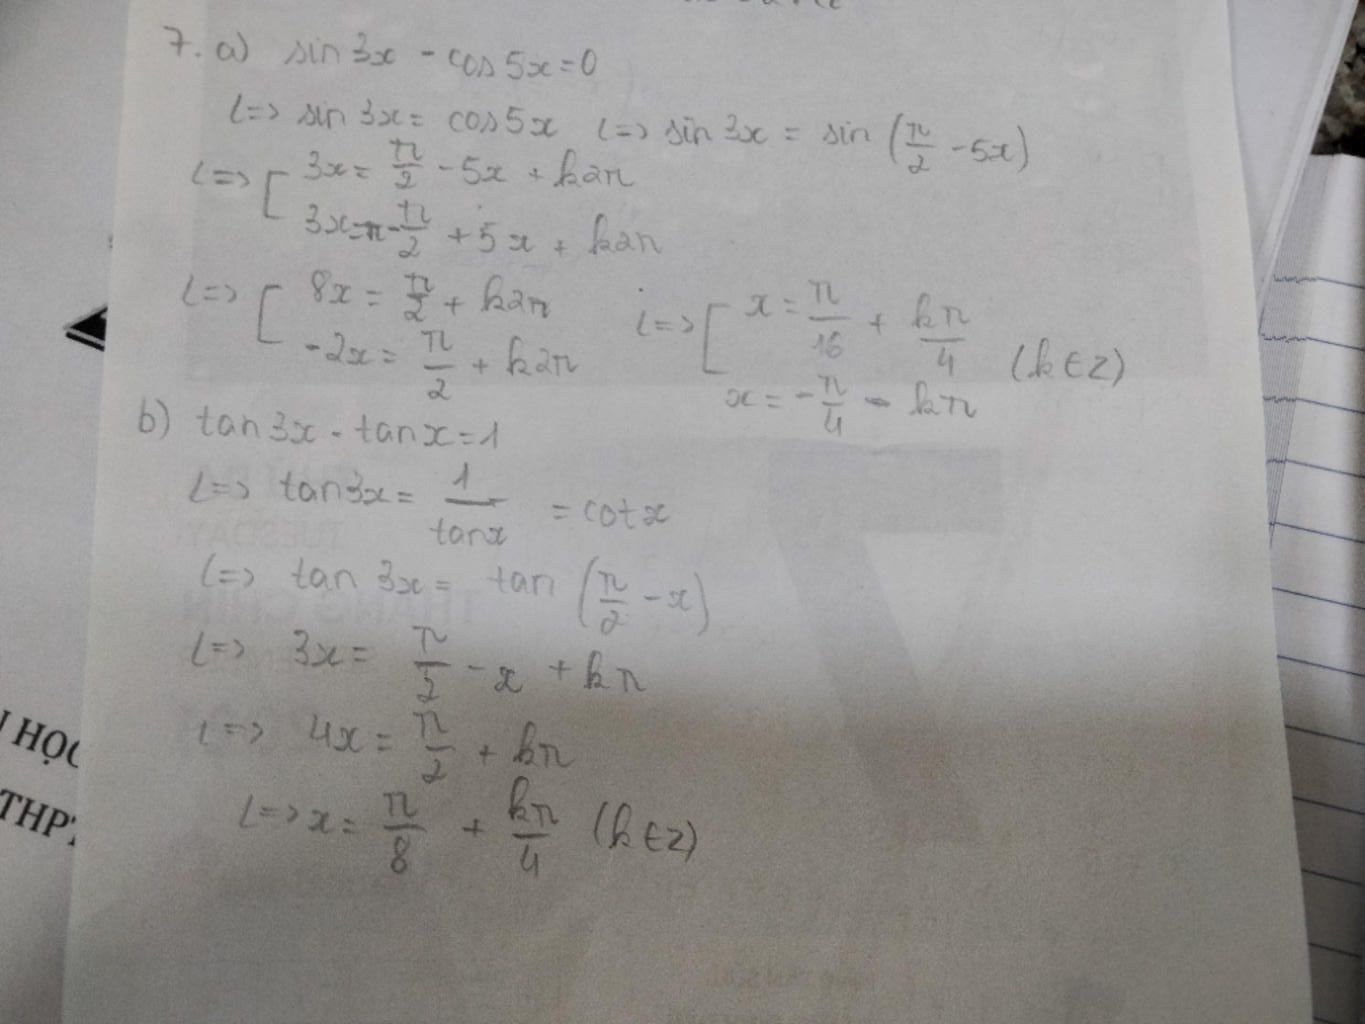 7. a) sin 3x - cos 5x = 0
<=> sin 3x = cos 5x <=> sin 3x = sin (π/2 - 5x)
<=> [ 3x = π/2 - 5x + k2π
3x = π - π/2 + 5x + k2π
<=> [ 8x = π/2 + k2π <=> [ x = π/16 + kπ/4
-2x = π/2 + k2π x = -π/4 - kπ (k ∈ Z)
b) tan 3x . tan x = 1
<=> tan 3x = 1/tan x = cot x
<=> tan 3x = tan (π/2 - x)
<=> 3x = π/2 - x + kπ
<=> 4x = π/2 + kπ
<=> x = π/8 + kπ/4 (k ∈ Z)
HỌC
THPT